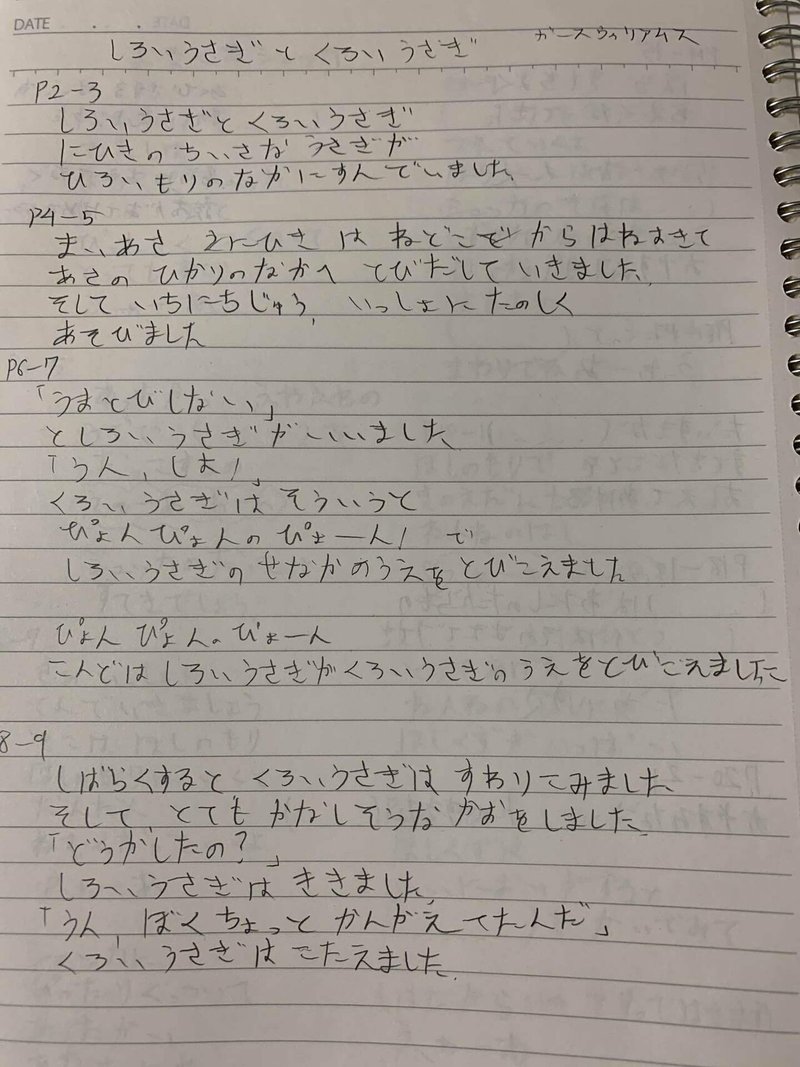 DATE
しろいうさぎ と くろい うさぎ ガースウィリアムス
P2-3
しろいうさぎと くろいうさぎ
にひきの ちいさな うさぎが
ひろい もりの なかに すんでいました
P4-5
まいあさ 2にひき は ねどこで からはねおきて
あさの ひかりのなかへ とびだして いきました
そして いちにちじゅう、 いっしょに たのしく
あそびました
P6-7
「うまとびしない」
としろいうさぎがいいました
「うん、しよ!」
くろいうさぎは そういうと
ぴょんぴょんの ぴょーん! で
しろいうさぎの せなかのうえを とびこえました
ぴょん ぴょんの ぴょーん
こんどは しろいうさぎが くろいうさぎの うえを とびこえました
8-9
しばらくすると、くろいうさぎは すわりこみました
そして、とても かなしそうな かおを しました
「どうかしたの?」
しろいうさぎは ききました
「うん、ぼく ちょっと かんがえてたんだ」
くろい うさぎは こたえました